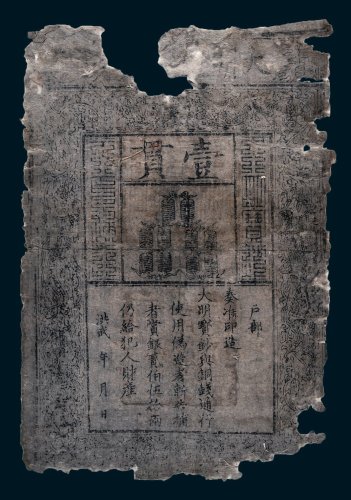 大
壹貫
戶部
奏准印造
大明寶鈔與銅錢通行
使用偽造者斬告捕
者賞銀貳伯伍拾兩
仍給犯人財產
洪武 年 月 日